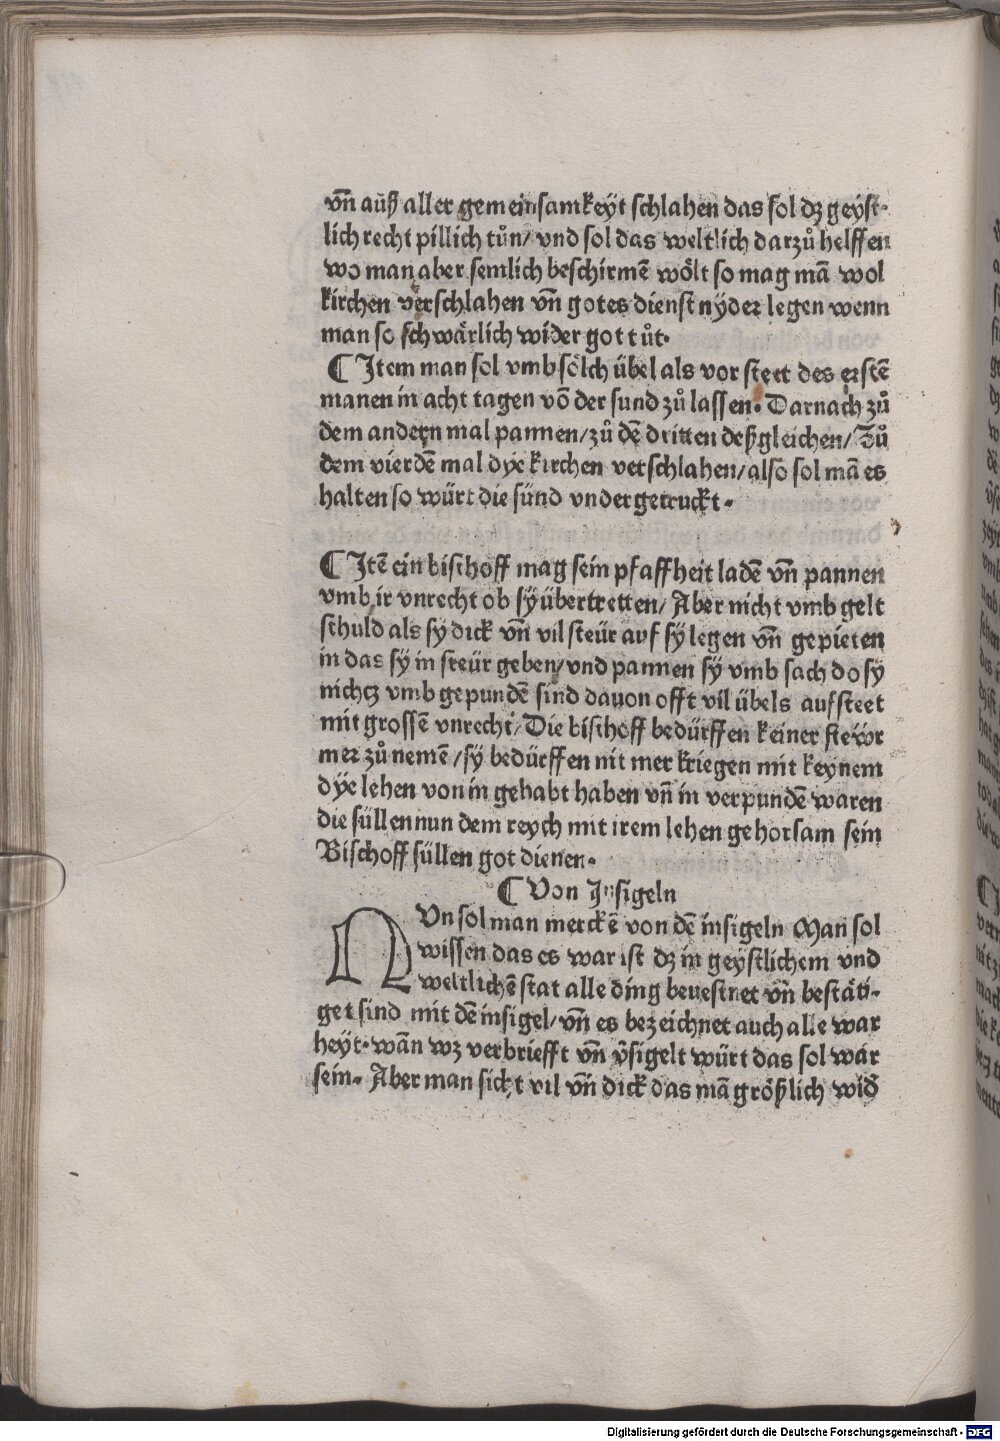 vñ aůß aller gemeinsamkeyt schlahen das sol dz geyst-
lich recht pillich tůn/ vnd sol das weltlich darzů helffen
wo man aber semlich beschirmē wölt so mag mā wol
kirchen verschlahen vñ gotes dienst nÿder legen wenn
man so schwärlich wider got tůt.
¶ Item man sol vmb sölch übel als vor stett des erstē
manen in acht tagen vō der sund zů lassen. Darnach zů
dem andern mal pannen/ zů dē dritten deßgleichen/ Zů
dem vierdē mal dye kirchen verschlahen/ also sol mā es
halten so würt die sünd vndergetruckt.
¶ Itē ein bischoff mag sein pfaffheit ladē vñ pannen
vmb ir vnrecht ob sÿ übertretten/ Aber nicht vmb gelt
schuld als sÿ dick vñ vil steür auf sÿ legen vñ gepieten
in das sÿ in steür geben/ vnd pannen sÿ vmb sach do sÿ
nichcz vmb gepundē sind dauon offt vil übels aufsteet
mit grossē vnrecht/ Die bischoff bedürffen keiner stewr
mer zů nemē/ sÿ bedürffen nit mer kriegen mit keynem
dÿe lehen von in gehabt haben vñ in verpundē waren
die süllen nun dem reych mit irem lehen gehorsam sein
Bischoff süllen got dienen.
¶ Von Insigeln
NVn sol man merckē von dē insigeln Man sol
wissen das es war ist dz in geystlichem vnd
weltlichē stat alle ding beuestnet vñ bestäti-
get sind mit dē insigel/ vñ es bezeichnet auch alle war
heyt. wān wz verbriefft vñ v̄sigelt würt das sol war
sein. Aber man sicht vil vñ dick das mā größlich wid̄
Digitalisierung gefördert durch die Deutsche Forschungsgemeinschaft - DFG